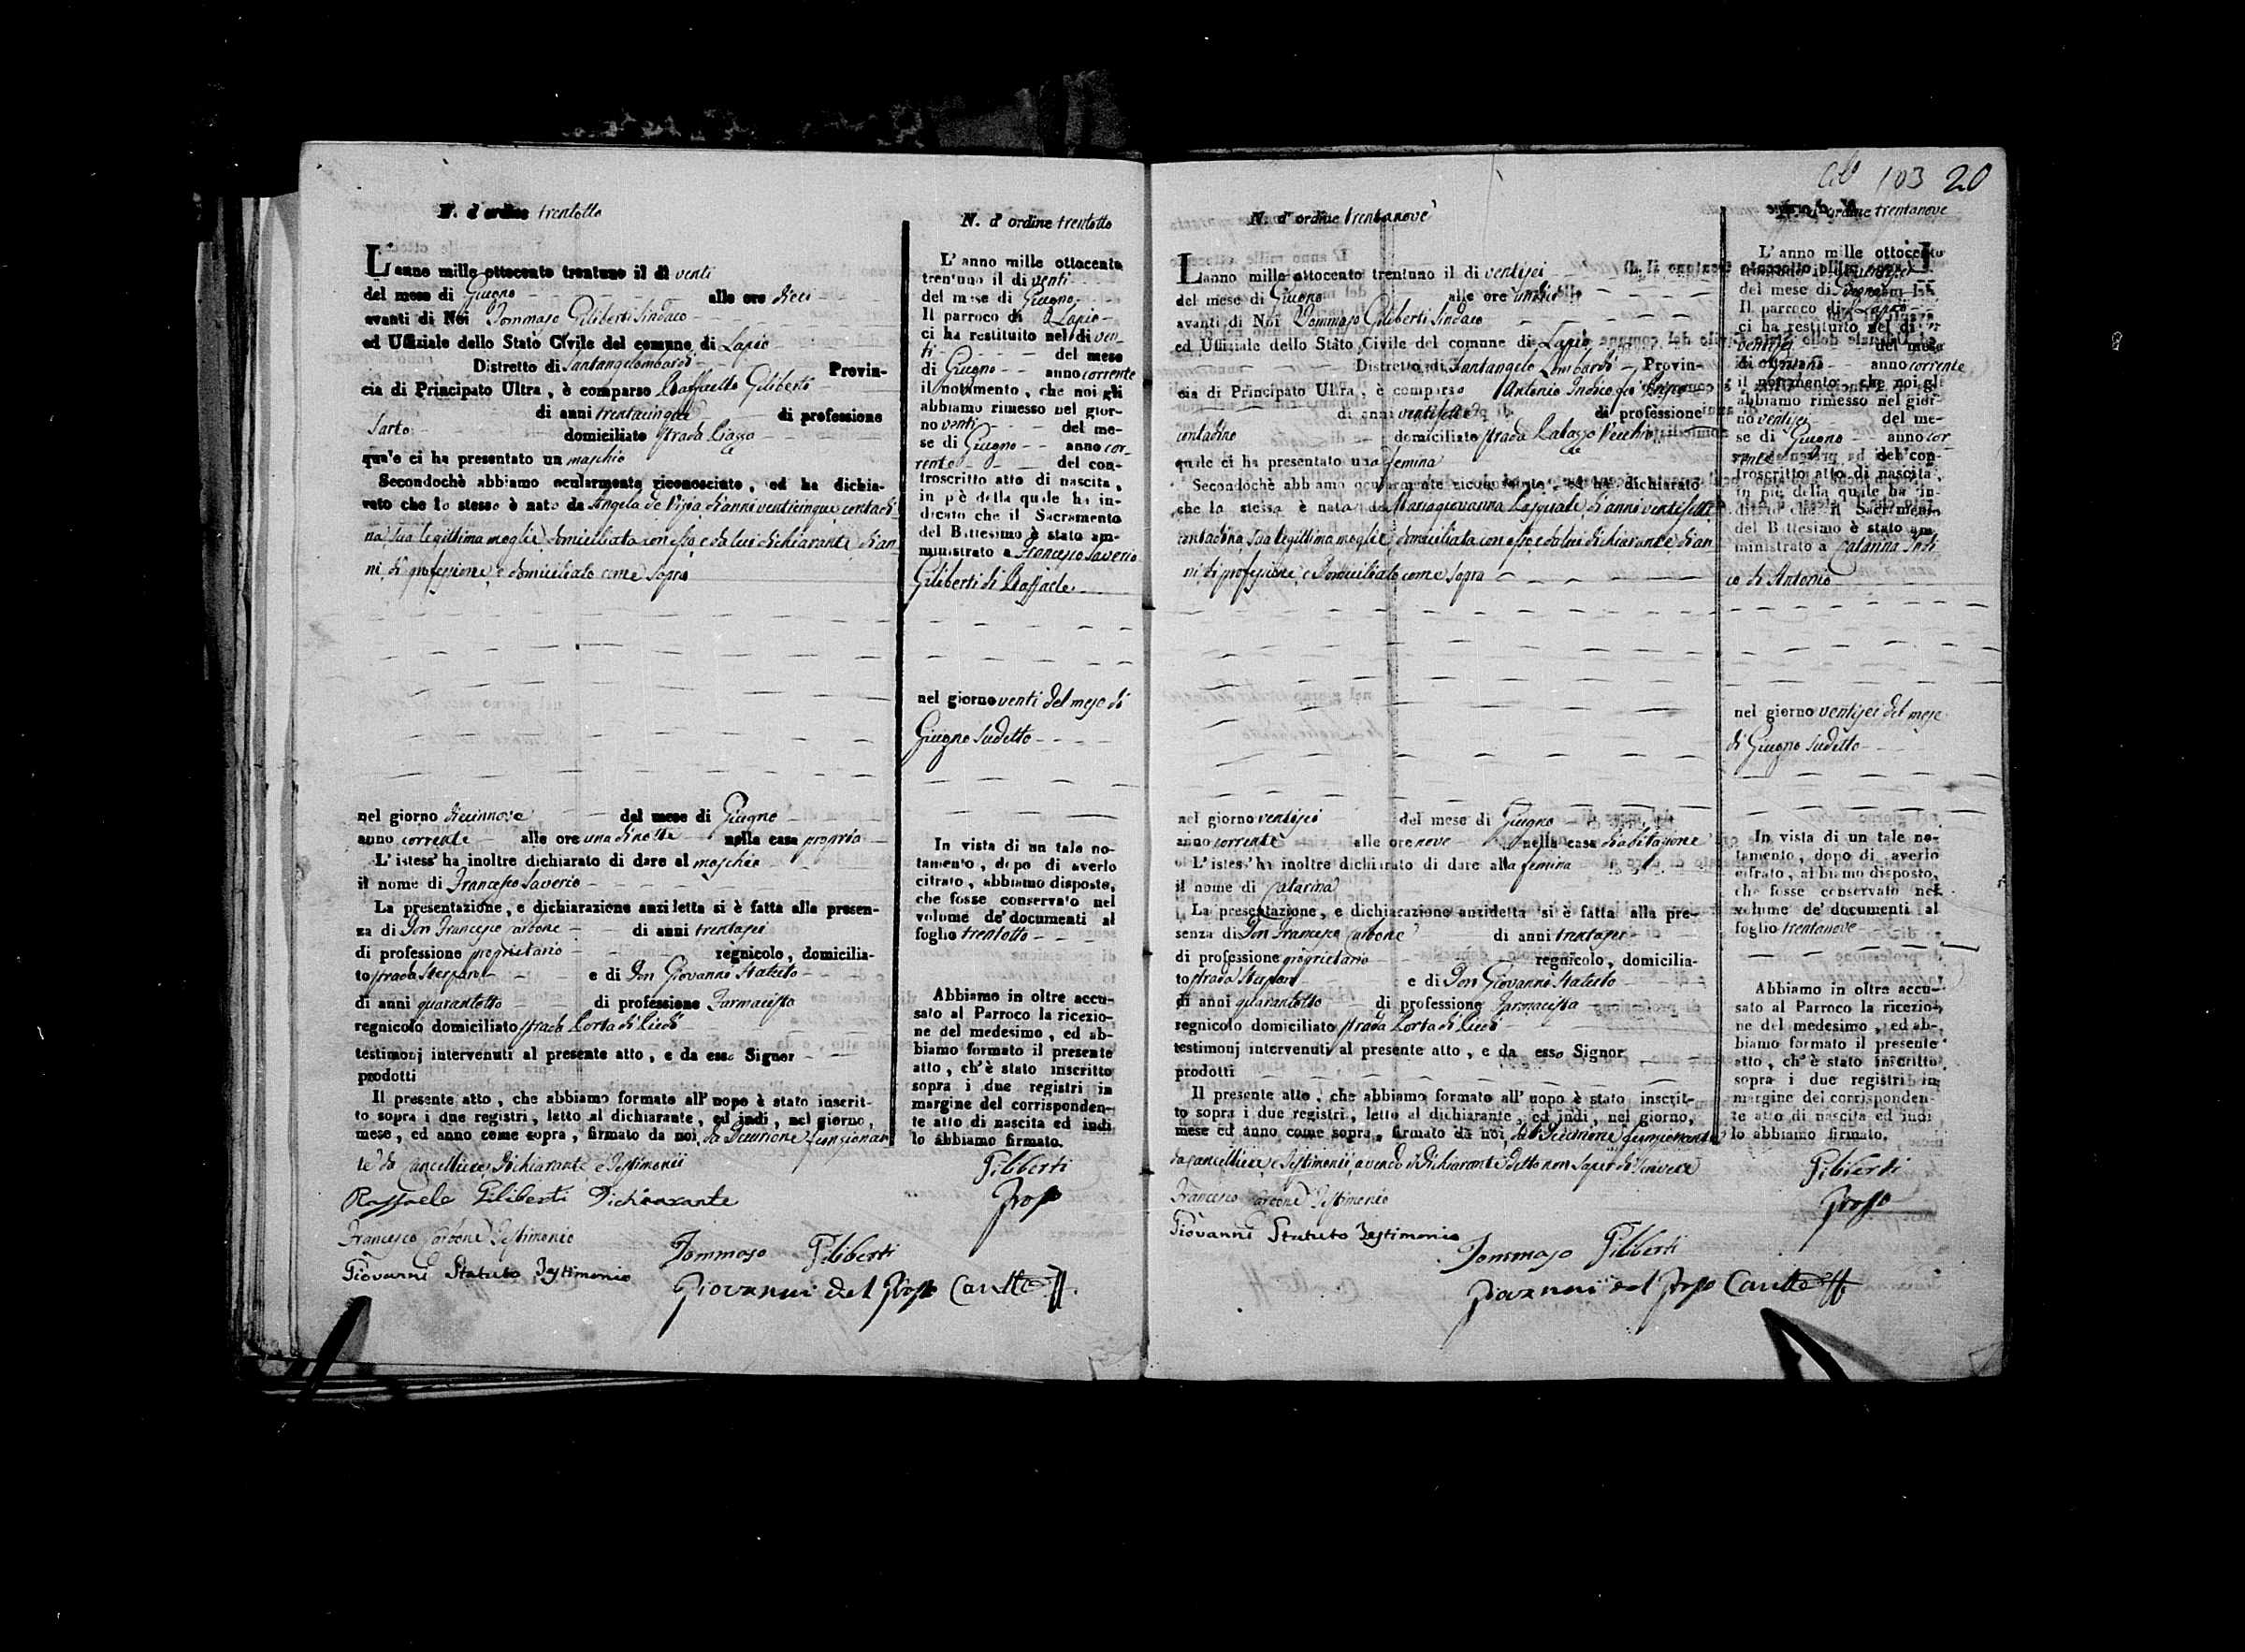 N. d'ordine trentotto
L'anno mille ottocento trentuno il dì venti
del mese di Giugno alle ore dieci
avanti di Noi Tommaso Giliberti Sindaco
ed Uffiziale dello Stato Civile del comune di Lapio
Distretto di Santangelolombardi Provin-
cia di Principato Ultra, è comparso Raffaello Giliberti
di anni trentacinque di professione
Sarto domiciliato strada Piazza
quale ci ha presentato un maschio
Secondochè abbiamo ocularmente riconosciuto, ed ha dichia-
rato che lo stesso è nato da Angela de Vizia di anni venticinque contadi-
na, sua legittima moglie, domiciliata con esso, e da lui dichiarante di an
ni, di professione, e domiciliato come sopra
nel giorno diecinnove del mese di Giugno
anno corrente alle ore una di notte nella casa propria
L'istess' ha inoltre dichiarato di dare al maschio
il nome di Francesco Saverio
La presentazione, e dichiarazione anzidetta si è fatta alla presen-
za di Don Francesco Carbone di anni trentasei
di professione proprietario regnicolo, domicilia-
to strada e di Don Giovanni Statuto
di anni quarantotto di professione Farmacista
regnicolo domiciliato strada Porta di Piedi
testimonj intervenuti al presente atto, e da esso Signor
prodotti
Il presente atto, che abbiamo formato all'uopo è stato inscrit-
to sopra i due registri, letto al dichiarante, ed indi, nel giorno,
mese, ed anno come sopra, firmato da noi, da Decurione funzionan
te da Cancelliere, Dichiarante, e Testimonii
Raffaele Giliberti Dichiarante
Francesco Carbone Testimonio
Giovanni Statuto Testimonio
Tommaso Giliberti
Giovanni del Grosso Canc.
N. d'ordine trentotto
L'anno mille ottocento
trentuno il di venti
del mese di Giugno
Il parroco di Lapio
ci ha restituito nel di ven-
ti del mese
di Giugno anno corrente
il notamento, che noi gli
abbiamo rimesso nel gior-
no venti del me-
se di Giugno anno cor-
rente del con-
troscritto atto di nascita,
in piè della quale ha in-
dicato che il Sacramento
del Battesimo è stato am-
ministrato a Francesco Saverio
Giliberti di Raffaele
nel giorno venti del mese di
Giugno sudetto
In vista di un tale no-
tamento, dopo di averlo
cifrato, abbiamo disposto,
che fosse conservato nel
volume de' documenti al
foglio trentotto
Abbiamo in oltre accu-
sato al Parroco la ricezio-
ne del medesimo, ed ab-
biamo formato il presente
atto, ch'è stato inscritto
sopra i due registri in
margine del corrisponden-
te atto di nascita ed indi
lo abbiamo firmato.
Giliberti
103 20
N. d'ordine trentanove
L'anno mille ottocento trentuno il di ventisei
del mese di Giugno alle ore undici
avanti di Noi Tommaso Giliberti Sindaco
ed Uffiziale dello Stato Civile del comune di Lapio
Distretto di Santangelo Lombardi Provin-
cia di Principato Ultra, è comparso Antonio Indico
di anni ventisette di professione
contadino domiciliato strada Palazzo Vecchio
quale ci ha presentato una femina
Secondochè abbiamo ocularmente riconosciuto, ed ha dichiarato
che la stessa è nata da Mariagiovanna Pasquale, di anni ventisette
contadina, sua legittima moglie, domiciliata con esso, e da lui dichiarante di an
ni di professione, e domiciliato come sopra
nel giorno ventisei del mese di Giugno
anno corrente alle ore nove nella casa di abitazione
L'istess' ha inoltre dichiarato di dare alla femina
il nome di Catarina
La presentazione, e dichiarazione anzidetta si è fatta alla pre-
senza di Don Francesco Carbone di anni trentasei
di professione proprietario regnicolo, domicilia-
to strada e di Don Giovanni Statuto
di anni quarantotto di professione Farmacista
regnicolo domiciliato strada Porta di Piedi
testimonj intervenuti al presente atto, e da esso Signor
prodotti
Il presente atto, che abbiamo formato all'uopo è stato inscrit-
to sopra i due registri, letto al dichiarante, ed indi, nel giorno,
mese ed anno come sopra, firmato da noi, dal Decurione funzionante
da Cancelliere, e Testimonii, avendo il Dichiarante detto non saper di scrivere
Francesco Carbone Testimonio
Giovanni Statuto Testimonio
Tommaso Giliberti
Giovanni del Grosso Canc.
ordine trentanove
L'anno mille ottocento
del mese di Giugno
Il parroco di Lapio
ci ha restituito nel di
ventisei del mese
di Giugno anno corrente
il notamento, che noi gli
abbiamo rimesso nel gior-
no ventisei del me-
se di Giugno anno cor
rente del con-
troscritto atto di nascita,
in piè della quale ha in-
dicato che il Sacramento
del Battesimo è stato am-
ministrato a Catarina Indi
co di Antonio
nel giorno ventisei del mese
di Giugno sudetto
In vista di un tale no-
tamento, dopo di averlo
cifrato, abbiamo disposto,
che fosse conservato nel
volume de' documenti al
foglio trentanove
Abbiamo in oltre accu-
sato al Parroco la ricezio-
ne del medesimo, ed ab-
biamo formato il presente
atto, ch'è stato inscritto
sopra i due registri in
margine del corrisponden-
te atto di nascita ed indi
lo abbiamo firmato.
Giliberti